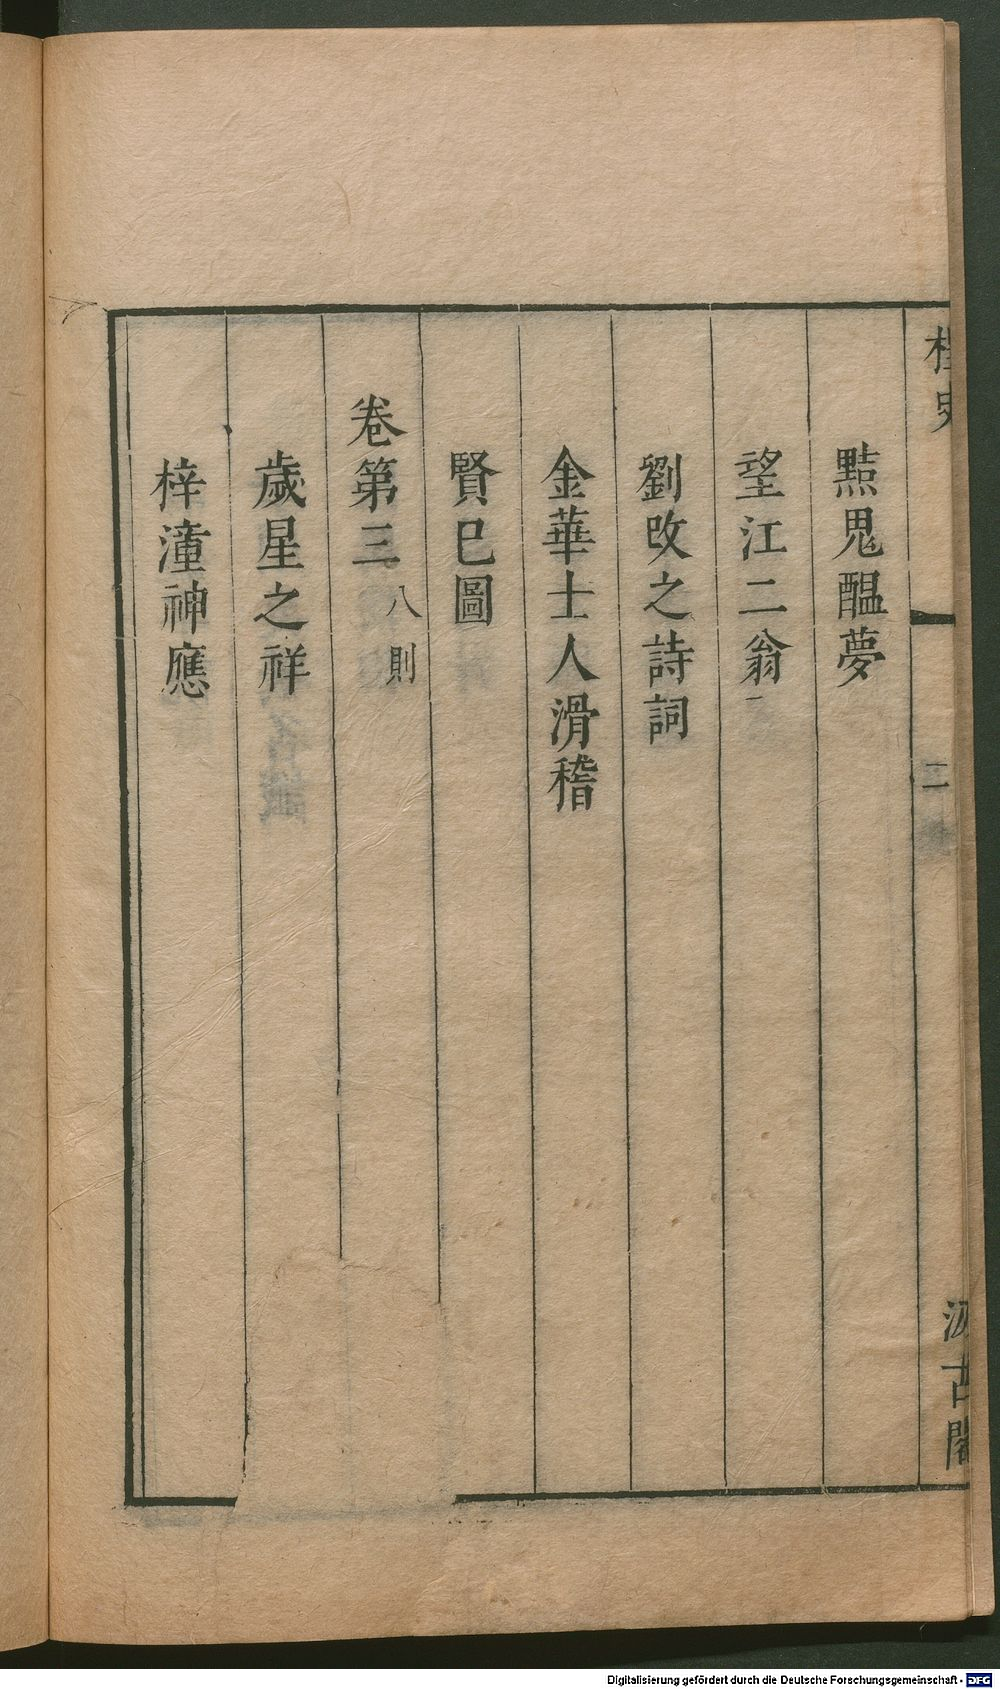 桯史 二 汲古閣
黠鬼醖夢
望江二翁
劉改之詩詞
金華士人滑稽
賢已圖
卷第三 八則
歲星之祥
梓潼神應
Digitalisierung gefördert durch die Deutsche Forschungsgemeinschaft - DFG